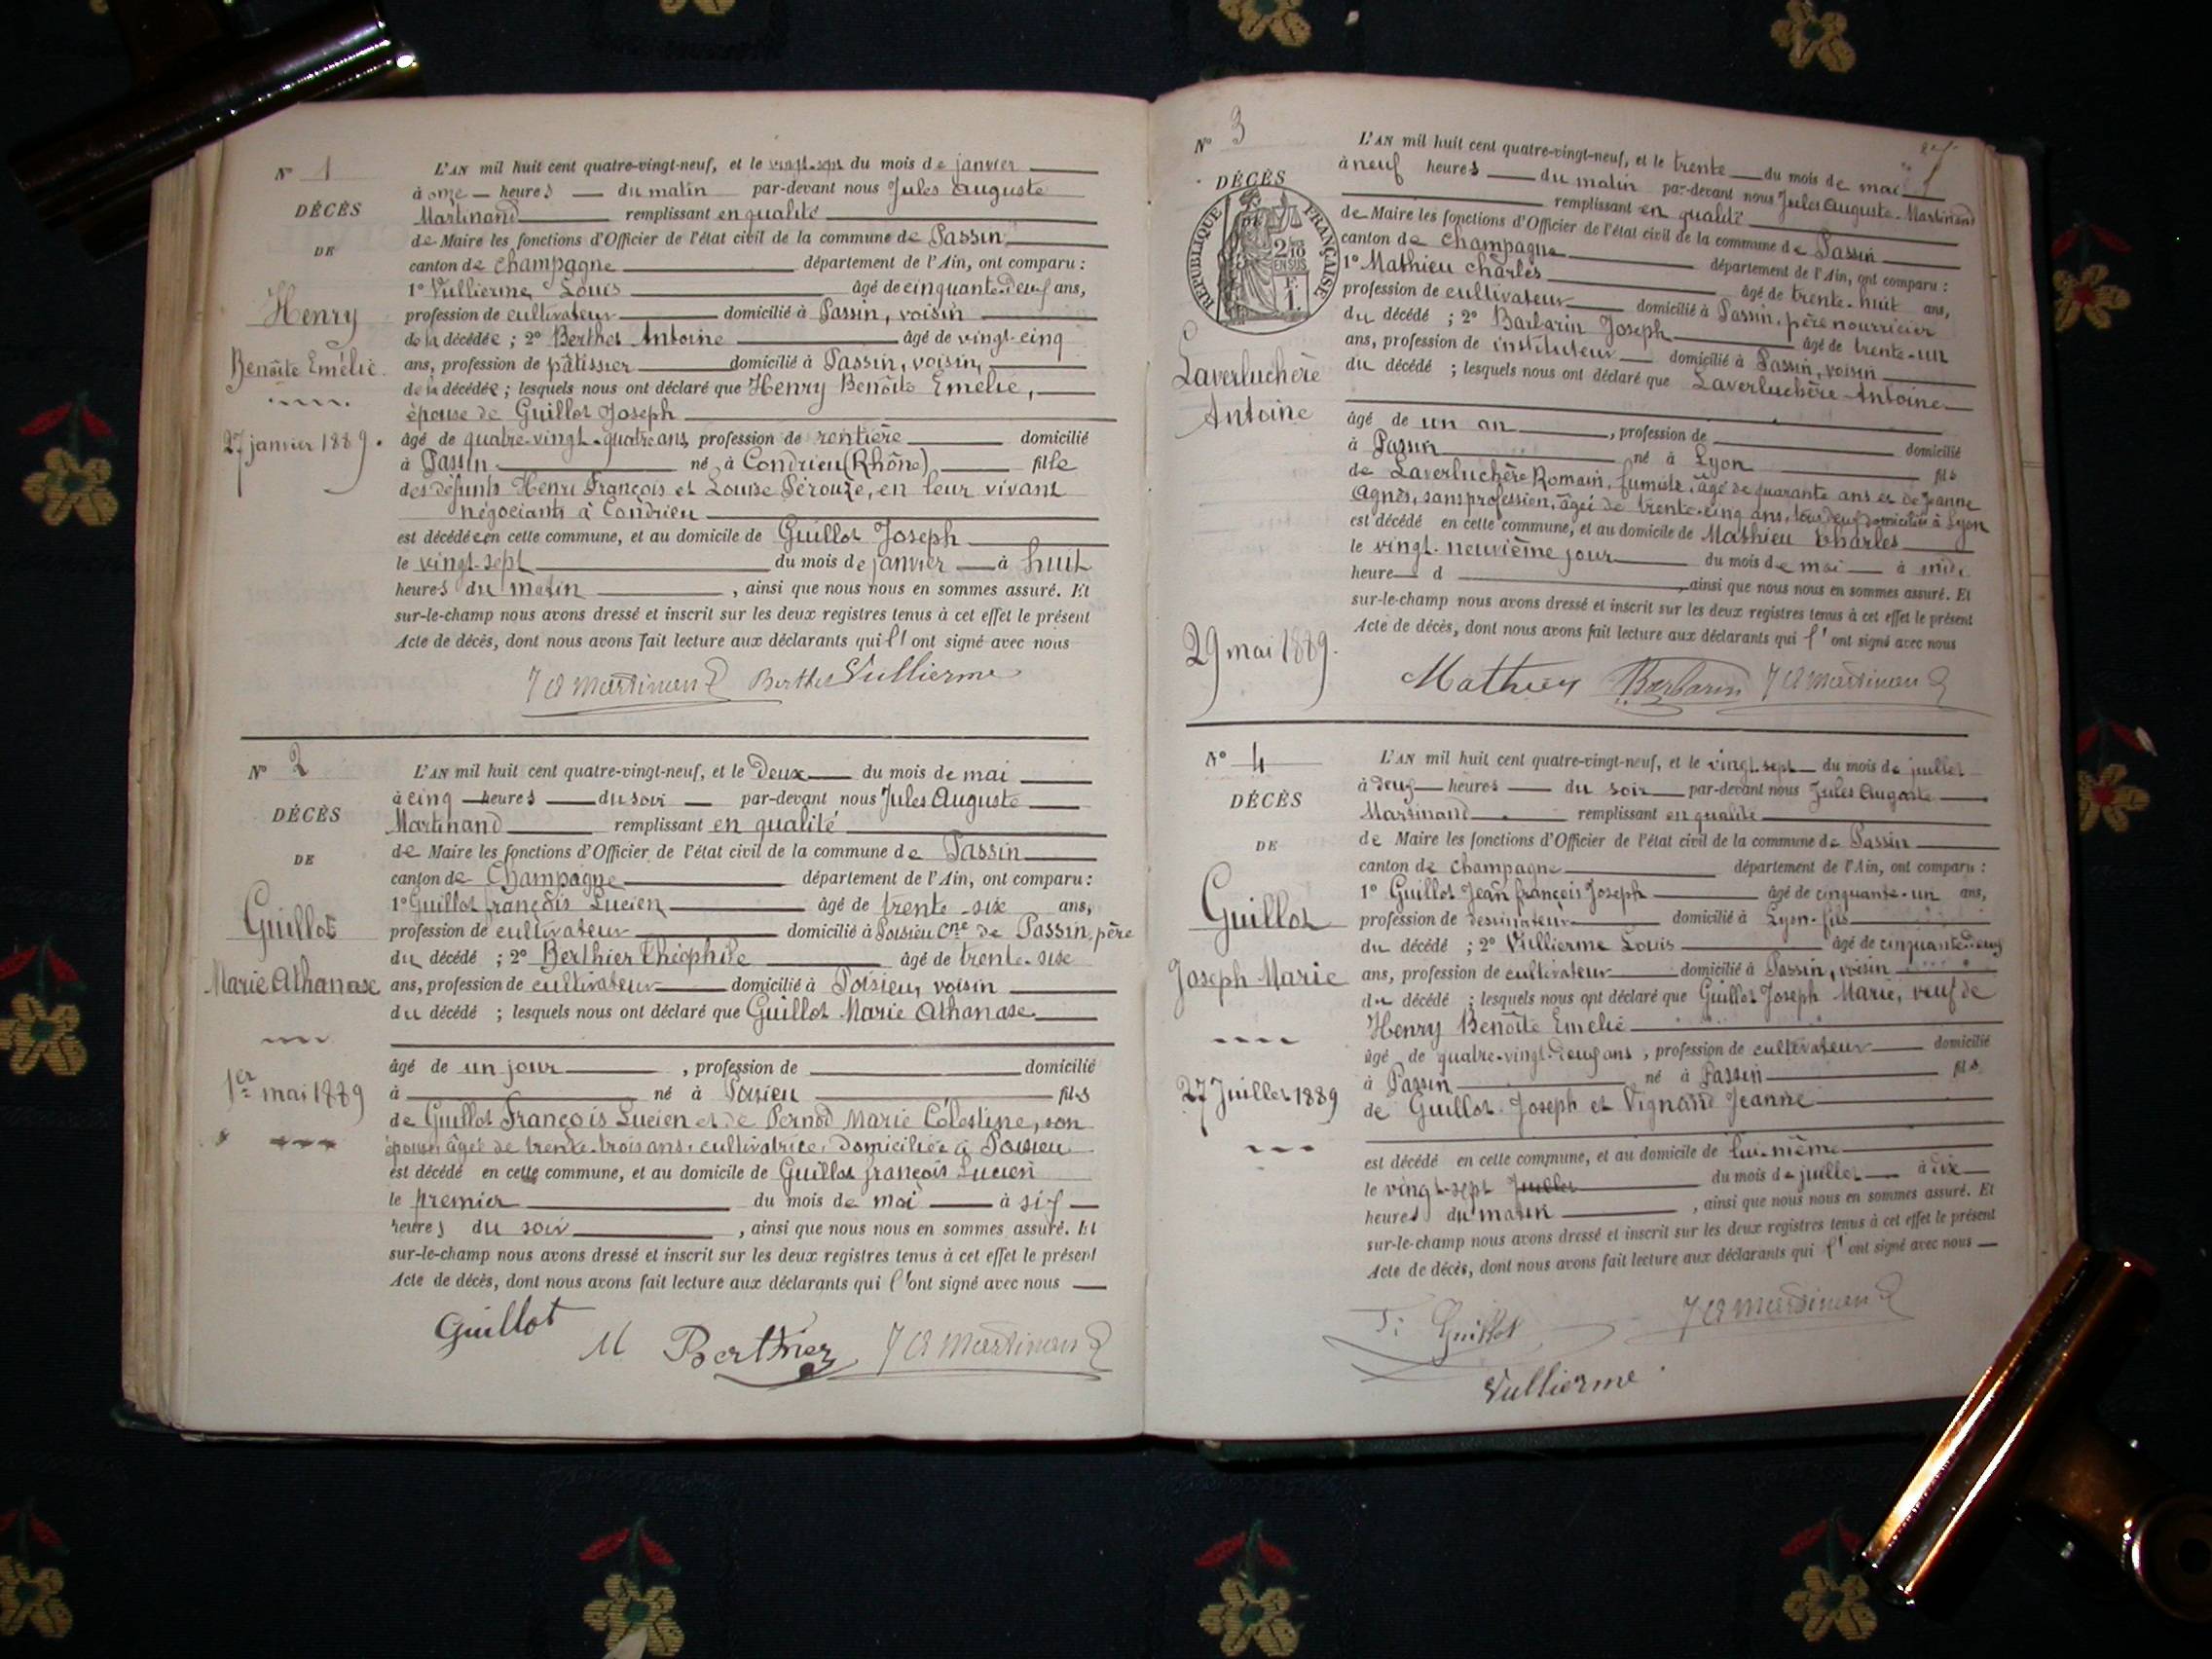 N° 1
DÉCÈS
DE
Henry
Benoîte Emélie.
27 janvier 1889.
L'AN mil huit cent quatre-vingt-neuf, et le vingt-sept du mois de janvier
à onze heures du matin par-devant nous Jules Auguste
Martinand remplissant en qualité
de Maire les fonctions d'Officier de l'état civil de la commune de Passin
canton de Champagne département de l'Ain, ont comparu :
1° Vullierme Louis âgé de cinquante-deux ans,
profession de cultivateur domicilié à Passin, voisin
de la décédée ; 2° Berthet Antoine âgé de vingt-cinq
ans, profession de pâtissier domicilié à Passin, voisin,
de la décédée ; lesquels nous ont déclaré que Henry Benoîte Emélie,
épouse de Guillot Joseph
âgé de quatre-vingt-quatre ans, profession de rentière domicilié
à Passin né à Condrieu (Rhône) fille
des défunts Henri François et Louise Pérouze, en leur vivant
négociants à Condrieu
est décédée en cette commune, et au domicile de Guillot Joseph
le vingt-sept du mois de janvier à huit
heures du matin , ainsi que nous nous en sommes assuré. Et
sur-le-champ nous avons dressé et inscrit sur les deux registres tenus à cet effet le présent
Acte de décès, dont nous avons fait lecture aux déclarants qui l'ont signé avec nous
J A Martinand Berthet Vullierme
N° 2
DÉCÈS
DE
Guillot
Marie Athanase
1er mai 1889
L'AN mil huit cent quatre-vingt-neuf, et le deux du mois de mai
à cinq heures du soir par-devant nous Jules Auguste
Martinand remplissant en qualité
de Maire les fonctions d'Officier de l'état civil de la commune de Passin
canton de Champagne département de l'Ain, ont comparu :
1° Guillot françois Lucien âgé de trente-six ans,
profession de cultivateur domicilié à Poisieu Cne de Passin, père
du décédé ; 2° Berthier Théophile âgé de trente-six
ans, profession de cultivateur domicilié à Poisieu, voisin
du décédé ; lesquels nous ont déclaré que Guillot Marie Athanase
âgé de un jour , profession de domicilié
à né à Poisieu fils
de Guillot François Lucien et de Pernod Marie Célestine, son
épouse, âgée de trente-trois ans, cultivatrice, domiciliée à Poisieu
est décédé en cette commune, et au domicile de Guillot françois Lucien
le premier du mois de mai à six
heures du soir , ainsi que nous nous en sommes assuré. Et
sur-le-champ nous avons dressé et inscrit sur les deux registres tenus à cet effet le présent
Acte de décès, dont nous avons fait lecture aux déclarants qui l'ont signé avec nous
Guillot M Berthier J A Martinand
N° 3
DÉCÈS
RÉPUBLIQUE FRANÇAISE
2/10 EN SUS
Laverluchère
Antoine
29 mai 1889.
L'AN mil huit cent quatre-vingt-neuf, et le trente du mois de mai
à neuf heures du matin par-devant nous Jules Auguste Martinand
remplissant en qualité
de Maire les fonctions d'Officier de l'état civil de la commune de Passin
canton de Champagne département de l'Ain, ont comparu :
1° Mathieu Charles âgé de trente-huit ans,
profession de cultivateur domicilié à Passin, père nourricier
du décédé ; 2° Barbarin Joseph âgé de trente-un
ans, profession de instituteur domicilié à Passin, voisin
du décédé ; lesquels nous ont déclaré que Laverluchère Antoine
âgé de un an , profession de domicilié
à Passin né à Lyon fils
de Laverluchère Romain, fumiste, âgé de quarante ans et de Jeanne
Agnès, sans profession, âgée de trente-cinq ans, tous deux domiciliés à Lyon
est décédé en cette commune, et au domicile de Mathieu Charles
le vingt-neuvième jour du mois de mai à midi
heure d , ainsi que nous nous en sommes assuré. Et
sur-le-champ nous avons dressé et inscrit sur les deux registres tenus à cet effet le présent
Acte de décès, dont nous avons fait lecture aux déclarants qui l'ont signé avec nous
Mathieu Barbarin J A Martinand
N° 4
DÉCÈS
DE
Guillot
Joseph Marie
27 Juillet 1889
L'AN mil huit cent quatre-vingt-neuf, et le vingt-sept du mois de juillet
à deux heures du soir par-devant nous Jules Auguste
Martinand remplissant en qualité
de Maire les fonctions d'Officier de l'état civil de la commune de Passin
canton de Champagne département de l'Ain, ont comparu :
1° Guillot Jean françois Joseph âgé de cinquante-un ans,
profession de dessinateur domicilié à Lyon, fils
du décédé ; 2° Vullierme Louis âgé de cinquante-deux
ans, profession de cultivateur domicilié à Passin, voisin
du décédé ; lesquels nous ont déclaré que Guillot Joseph Marie, veuf de
Henry Benoîte Emélie
âgé de quatre-vingt-deux ans , profession de cultivateur domicilié
à Passin né à Passin fils
de Guillot Joseph et Vignand Jeanne
est décédé en cette commune, et au domicile de lui-même
le vingt-sept Juillet du mois de juillet à dix
heures du matin , ainsi que nous nous en sommes assuré. Et
sur-le-champ nous avons dressé et inscrit sur les deux registres tenus à cet effet le présent
Acte de décès, dont nous avons fait lecture aux déclarants qui l'ont signé avec nous
Guillot J A Martinand
Vullierme